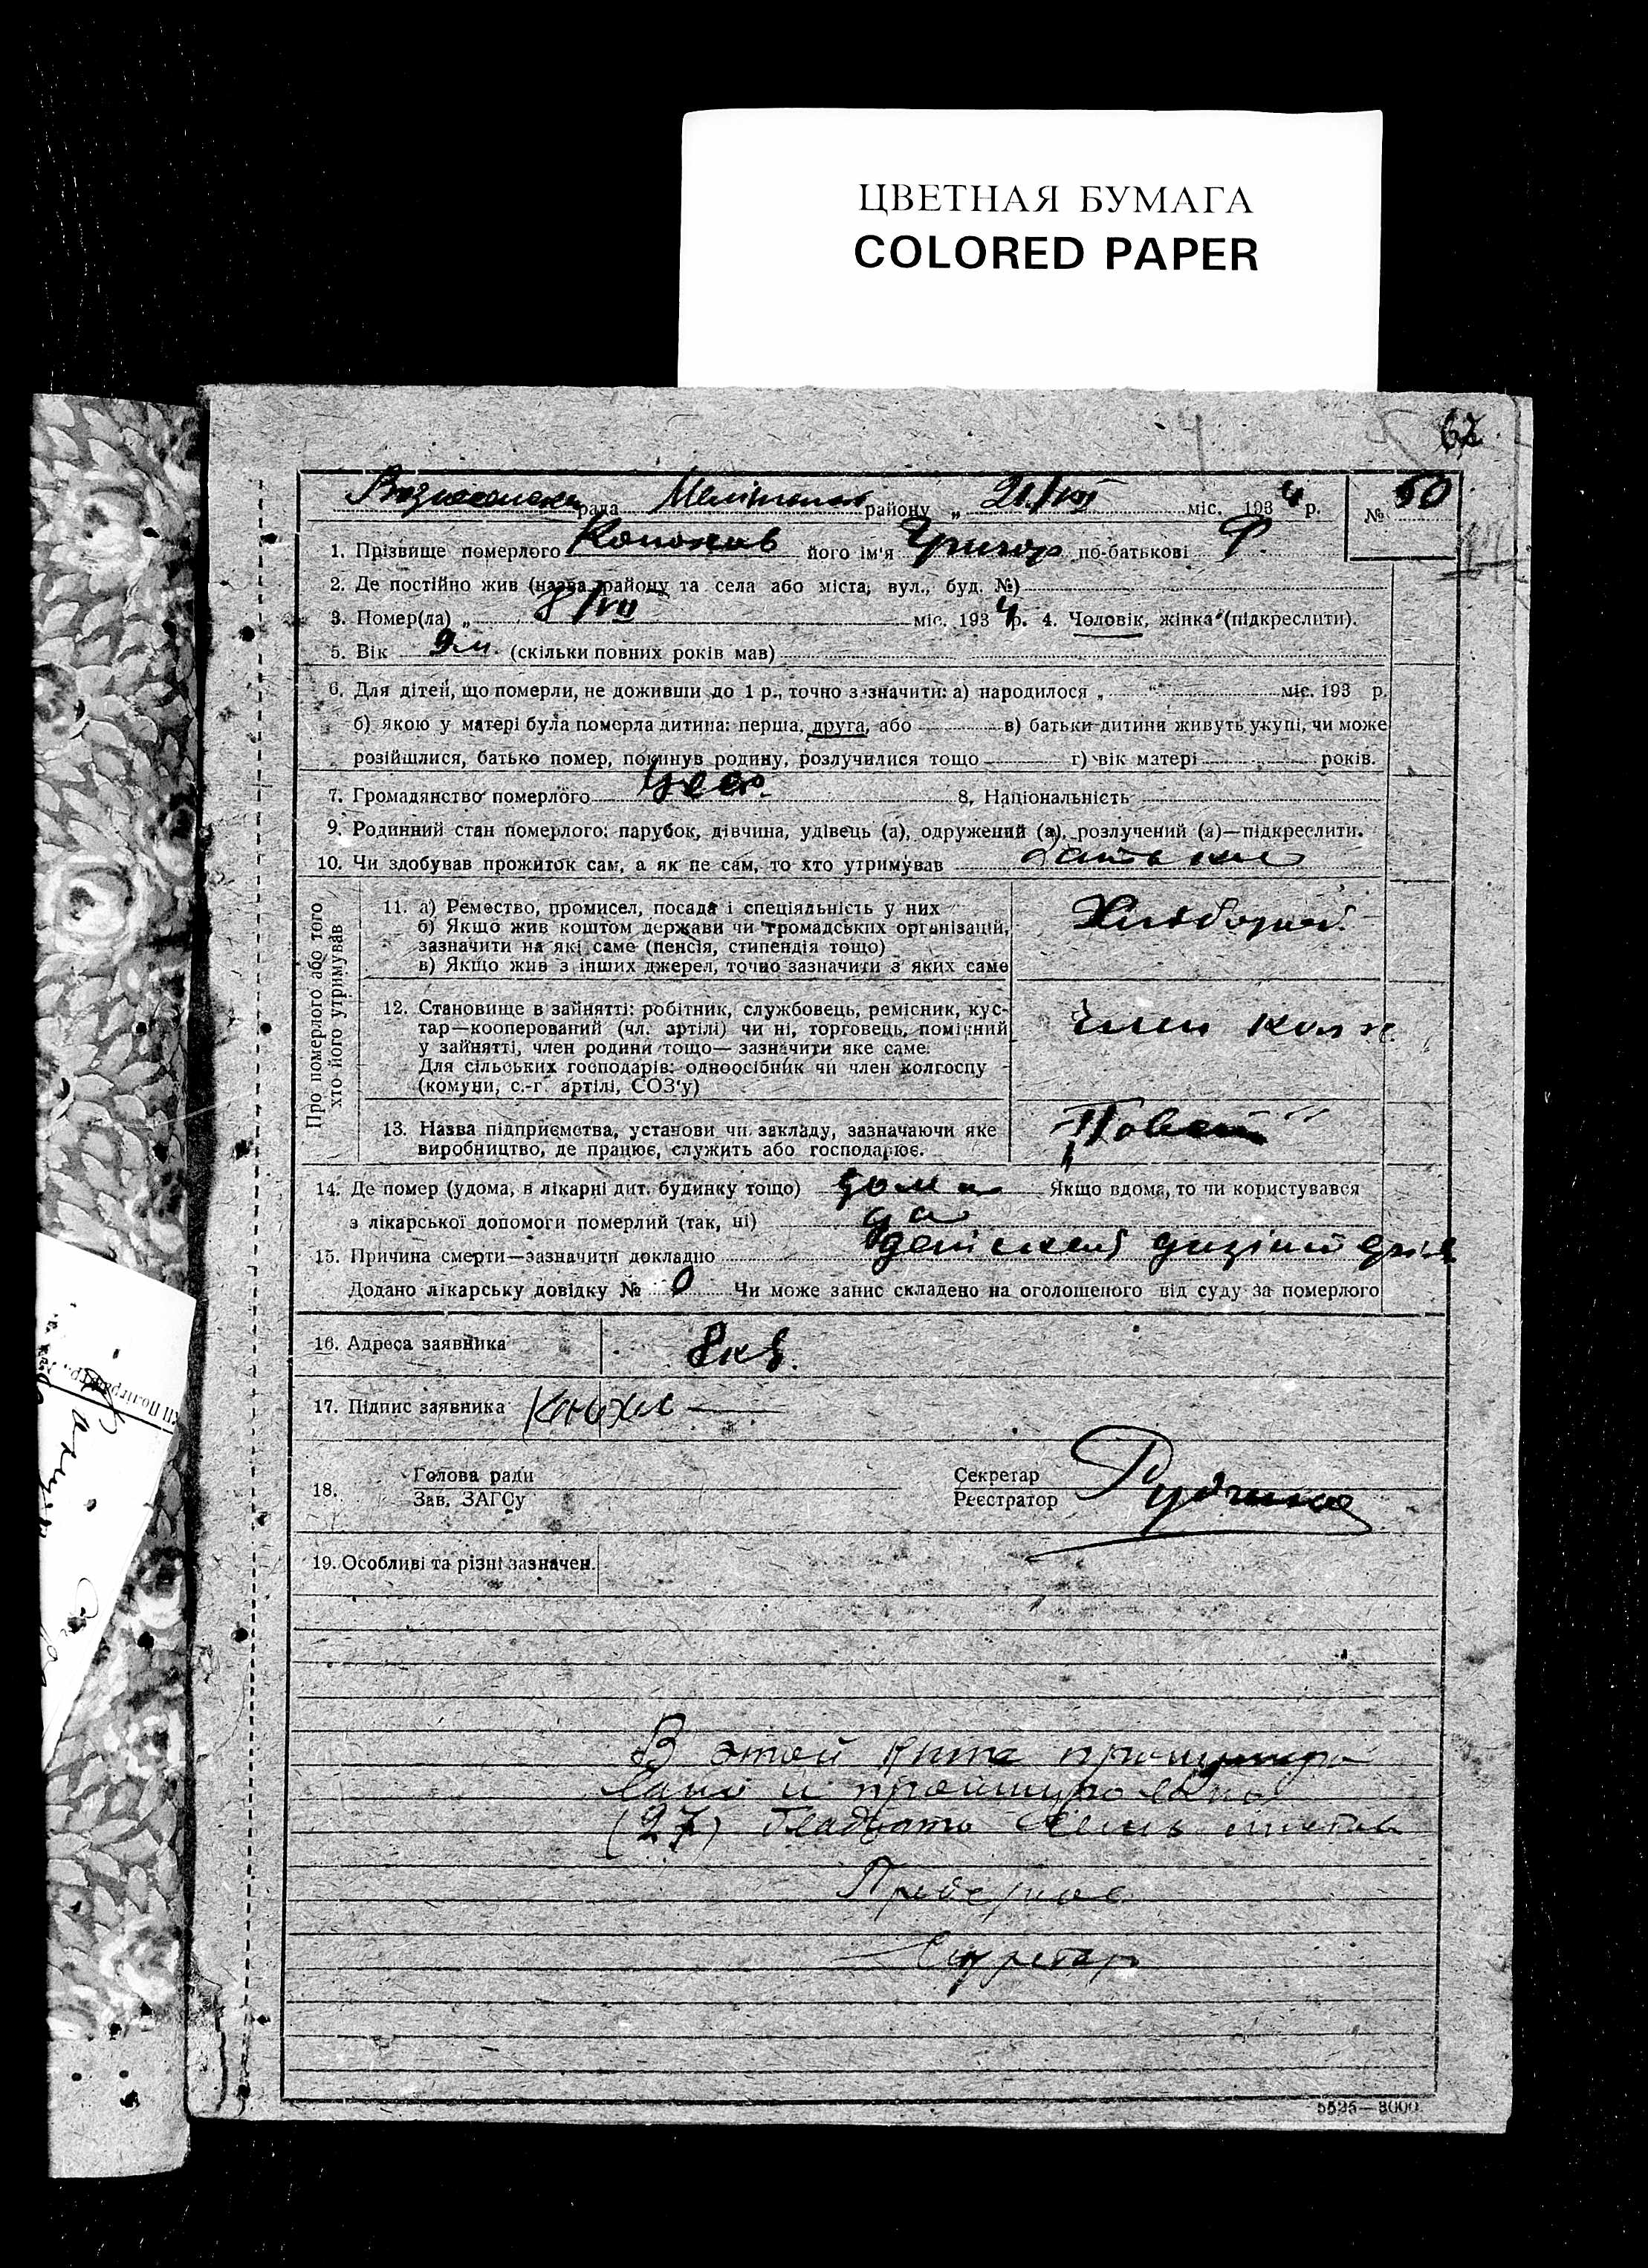 ЦВЕТНАЯ БУМАГА
COLORED PAPER
67
рада районy „ 21/VII міс. 1934 р. № 50
1. Прізвище померлого його ім'я Григор по-батькові
2. Де постійно жив (назва району та села або міста; вул., буд. №)
3. Помер(ла) „ 8/VII міс. 1934 р. 4. Чоловік, жінка (підкреслити).
5. Вік 9 м. (скільки повних років мав)
6. Для дітей, що померли, не доживши до 1 р., точно зазначити: а) народилося „ “ міс. 193 р.
б) якою у матері була померла дитина: перша, друга, або в) батьки дитини живуть укупі, чи може
розійшлися, батько помер, покинув родину, розлучилися тощо г) вік матері років.
7. Громадянство померлого 8. Національність
9. Родинний стан померлого: парубок, дівчина, удівець (а), одружений (а), розлучений (а)—підкреслити.
10. Чи здобував прожиток сам, а як не сам, то хто утримував батьки
Про померлого або того
хто його утримував
11. а) Ремество, промисел, посада і спеціяльність у них
б) Якщо жив коштом держави чи громадських організацій,
зазначити на які саме (пенсія, стипендія тощо)
в) Якщо жив з інших джерел, точно зазначити з яких саме
Хлібороб
12. Становище в зайнятті: робітник, службовець, ремісник, кус-
тар—кооперований (чл. артілі) чи ні, торговець, помічний
у зайнятті, член родини тощо— зазначити яке саме.
Для сільських господарів: одноосібник чи член колгоспу
(комуни, с.-г. артілі, СОЗ'у)
член
13. Назва підприємства, установи чи закладу, зазначаючи яке
виробництво, де працює, служить або господарює.
14. Де помер (удома, в лікарні дит. будинку тощо) дома Якщо вдома, то чи користувався
з лікарської допомоги померлий (так, ні) да
15. Причина смерти—зазначити докладно
Додано лікарську довідку № 0 Чи може запис складено на оголошеного від суду за померлого
16. Адреса заявника 8 кв.
17. Підпис заявника
18. Голова ради
Зав. ЗАГСу
Секретар
Реєстратор
19. Особливі та різні зазначен.
В этой
и
(27) Двадцать семь
Секретар
5525—8000